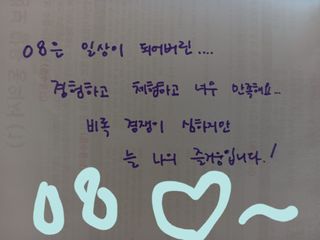 08은 일상이 되어버린....
경험하고 체험하고 너무 만족해요..
비록 경쟁이 심하지만
늘 나의 즐거움입니다.!
08 ♡~